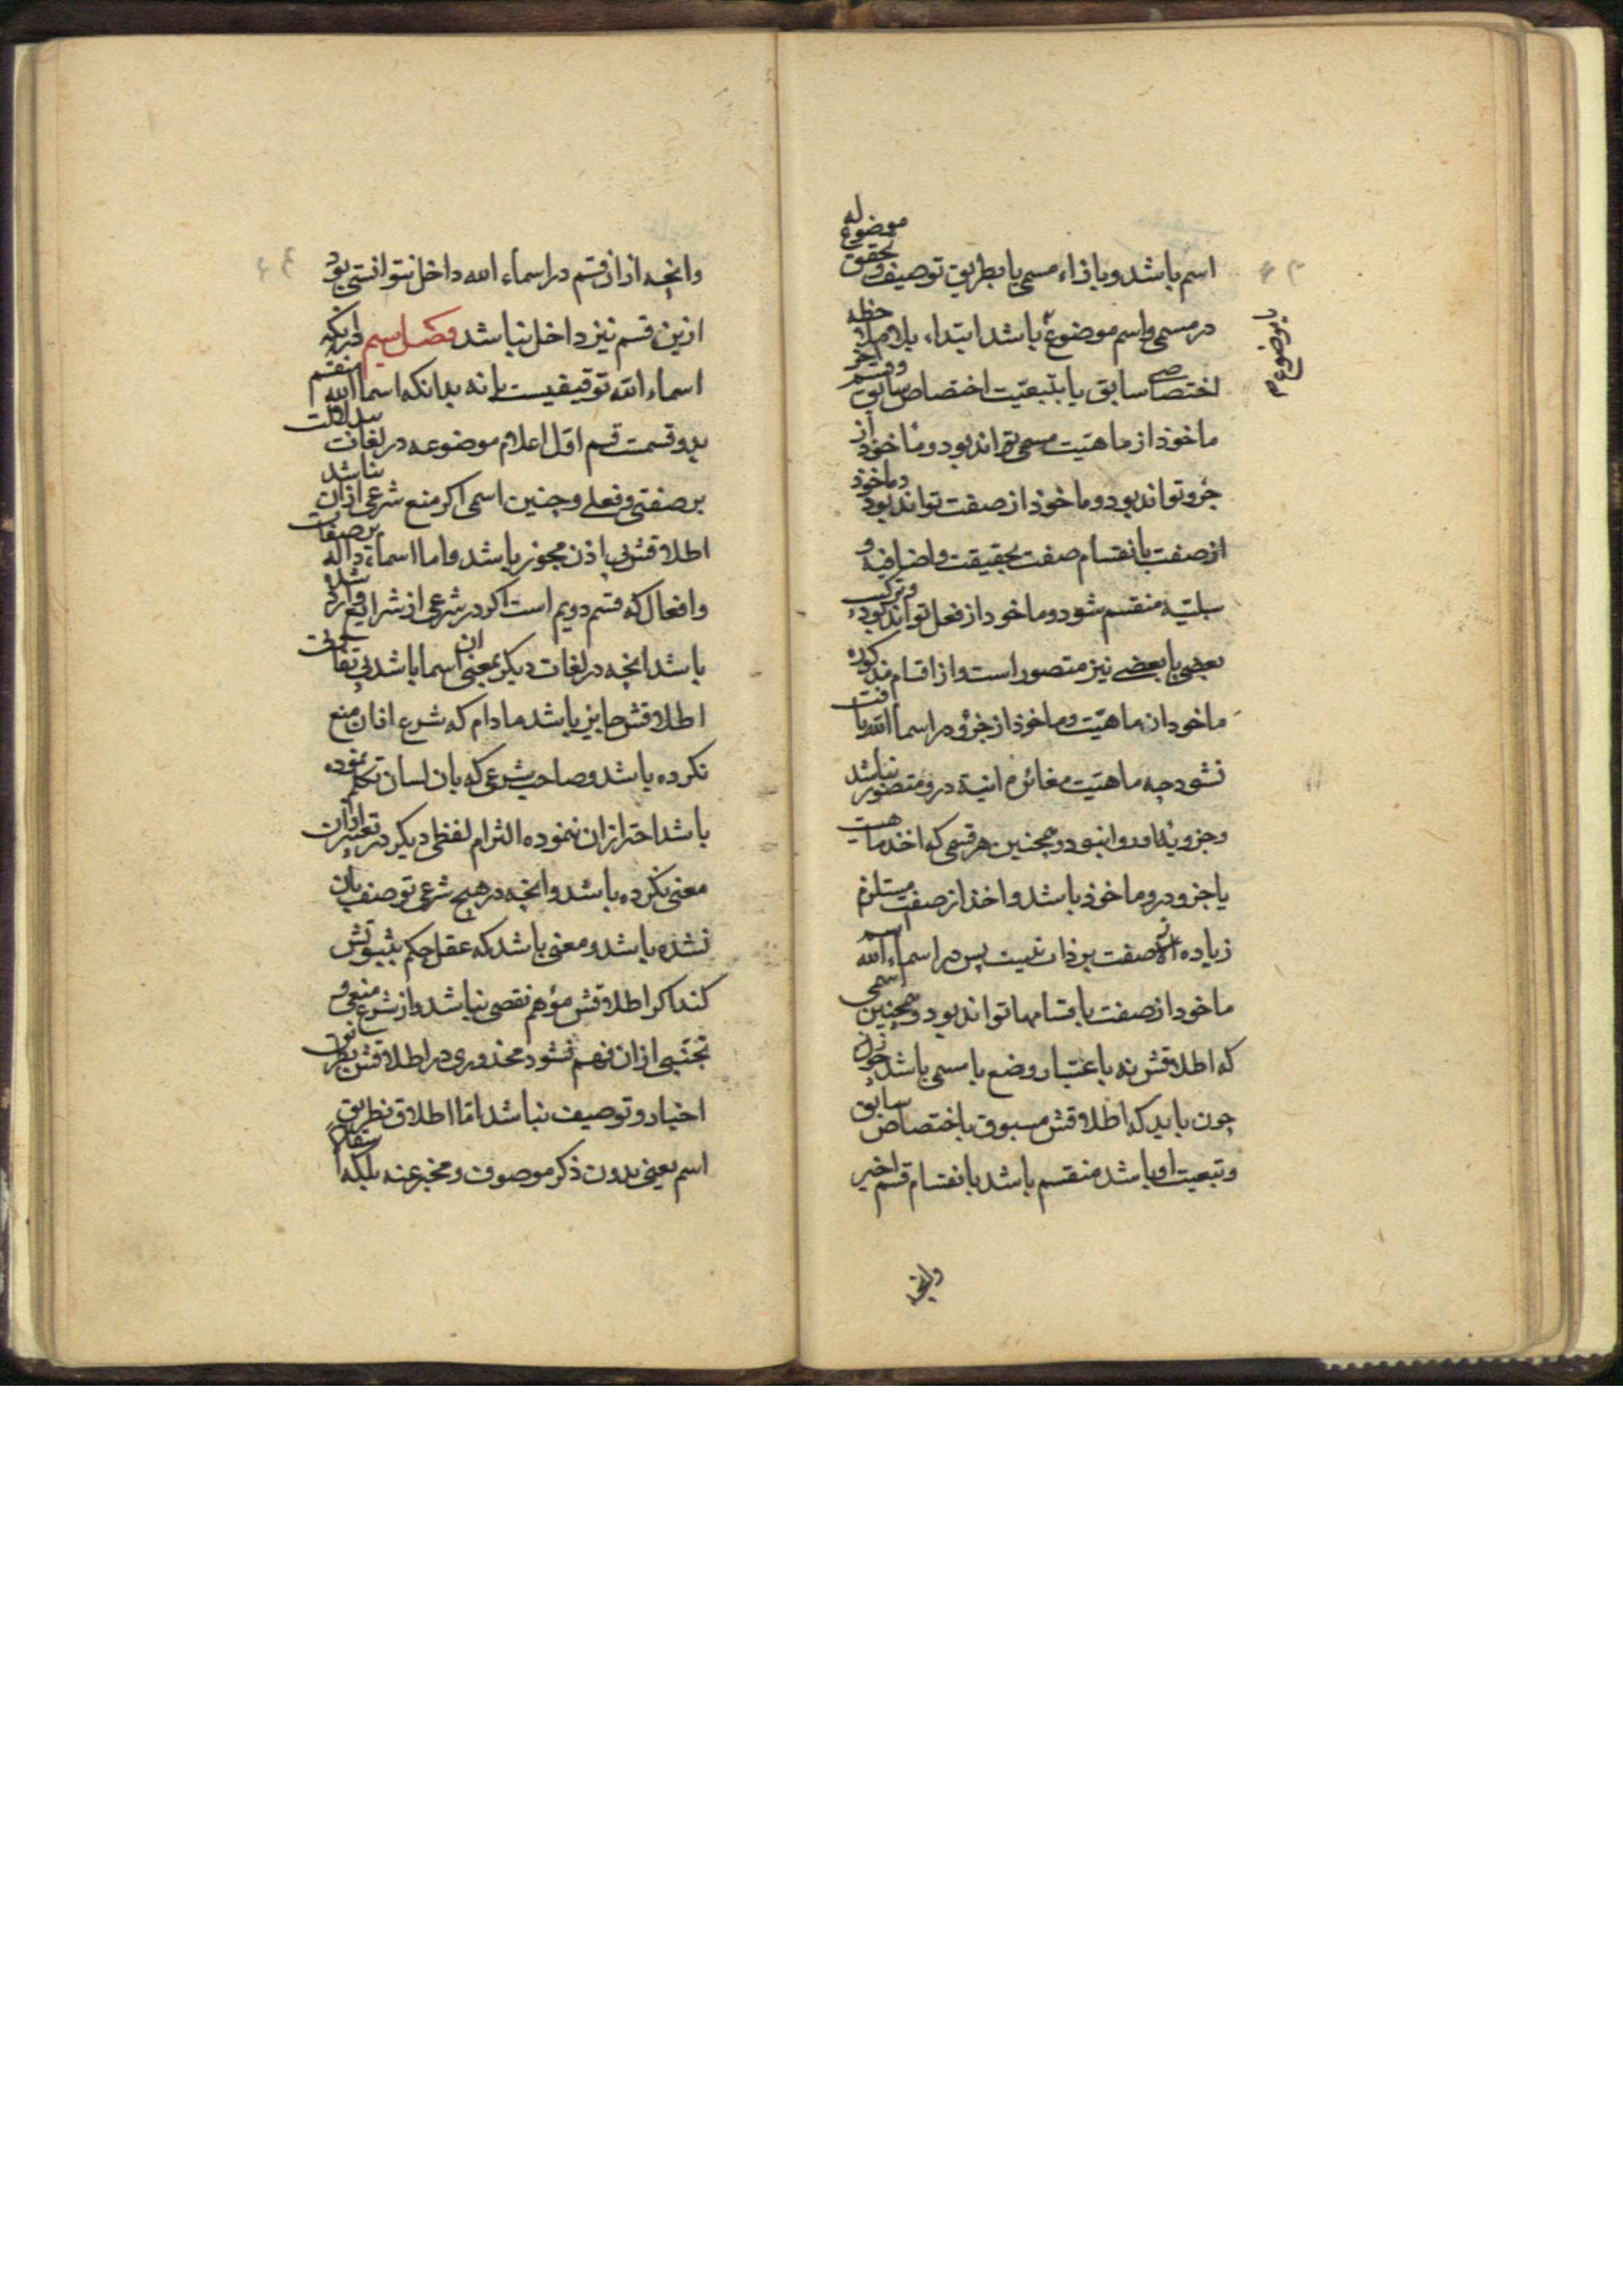 اسم باشد و بازاء مسمی یا بطریق توصیف و تحقق موضوع له
در مسمی و اسم موضوع باشد ابتداء بلا ملاحظه
اختصاصی سابق یا بتبعیّت اختصاص سابق و قسم آخر
ماخوذ از ماهیّت مسمی تواند بود و ماخوذ از
جزو تواند بود و ماخوذ از صفت تواند بود و ماخوذ
از صفت بانقسام صفت بحقیقت و اضافیه و
سلبیّه منقسم شود و ماخوذ از فعل تواند بود و ترکیب
بعضی با بعضی نیز متصور است و از اقسام مذکوره
ماخوذ از ماهیّت و ماخوذ از جزو در اسما الله یافت
نشود چه ماهیّت مغائر انیة درو متصور نباشد
و جزو بذاو روا نبود و همچنین هر قسمی که اخذ ماهیت
یا جزو درو ماخوذ باشد و اخذ از صفت مستلزم
زیاده صفت بر ذات نیست پس در اسماء الله اسم
ماخوذ از صفت باقسامها تواند بود و همچنین اسمی
که اطلاقش نه باعتبار وضع با مسمی باشد
چون باید که اطلاقش مسبوق باختصاص سابق
و تبعیت او باشد منقسم باشد بانقسام قسم اخیر
وانچه
وانچه از ان قسم در اسماء الله داخل نتوانستی بود
ازین قسم نیز داخل نباشد فصل سیم در انکه
اسماء الله توقیفیست یا نه بدانکه اسما الله منقسم
بدو قسمت قسم اوّل اعلام موضوعه در لغات بی دلالت
بر صفتی و فعلی و چنین اسمی اکر منع شرعی از ان نباشد
اطلاقش بی اذن مجوز باشد و اما اسماء داله بر صفات
و افعال که قسم دویم است اکر در شرعی از شرایع وارد شده
باشد انچه در لغات دیکر بمعنی ان اسما باشد بی تفاوت
اطلاقش جایز باشد مادام که شرع از ان منع
نکرده باشد و صاحب شرعی که بان لسان تکلم نموده
باشد احتراز ازان ننموده التزام لفظی دیکر در تعبیر از ان
معنی نکرده باشد و انچه در هیچ شرعی توصیف بان
نشده باشد و معنی باشد که عقل حکم بثبوتش
کند اکر اطلاقش موهم نقصی نباشد و از شرع منعی و
تجنّبی ازان فهم نشود محذوری در اطلاقش بطریق
اخبار و توصیف نباشد امّا اطلاق بطریق
اسم یعنی بدون ذکر موصوف و مخبر عنه بلکه